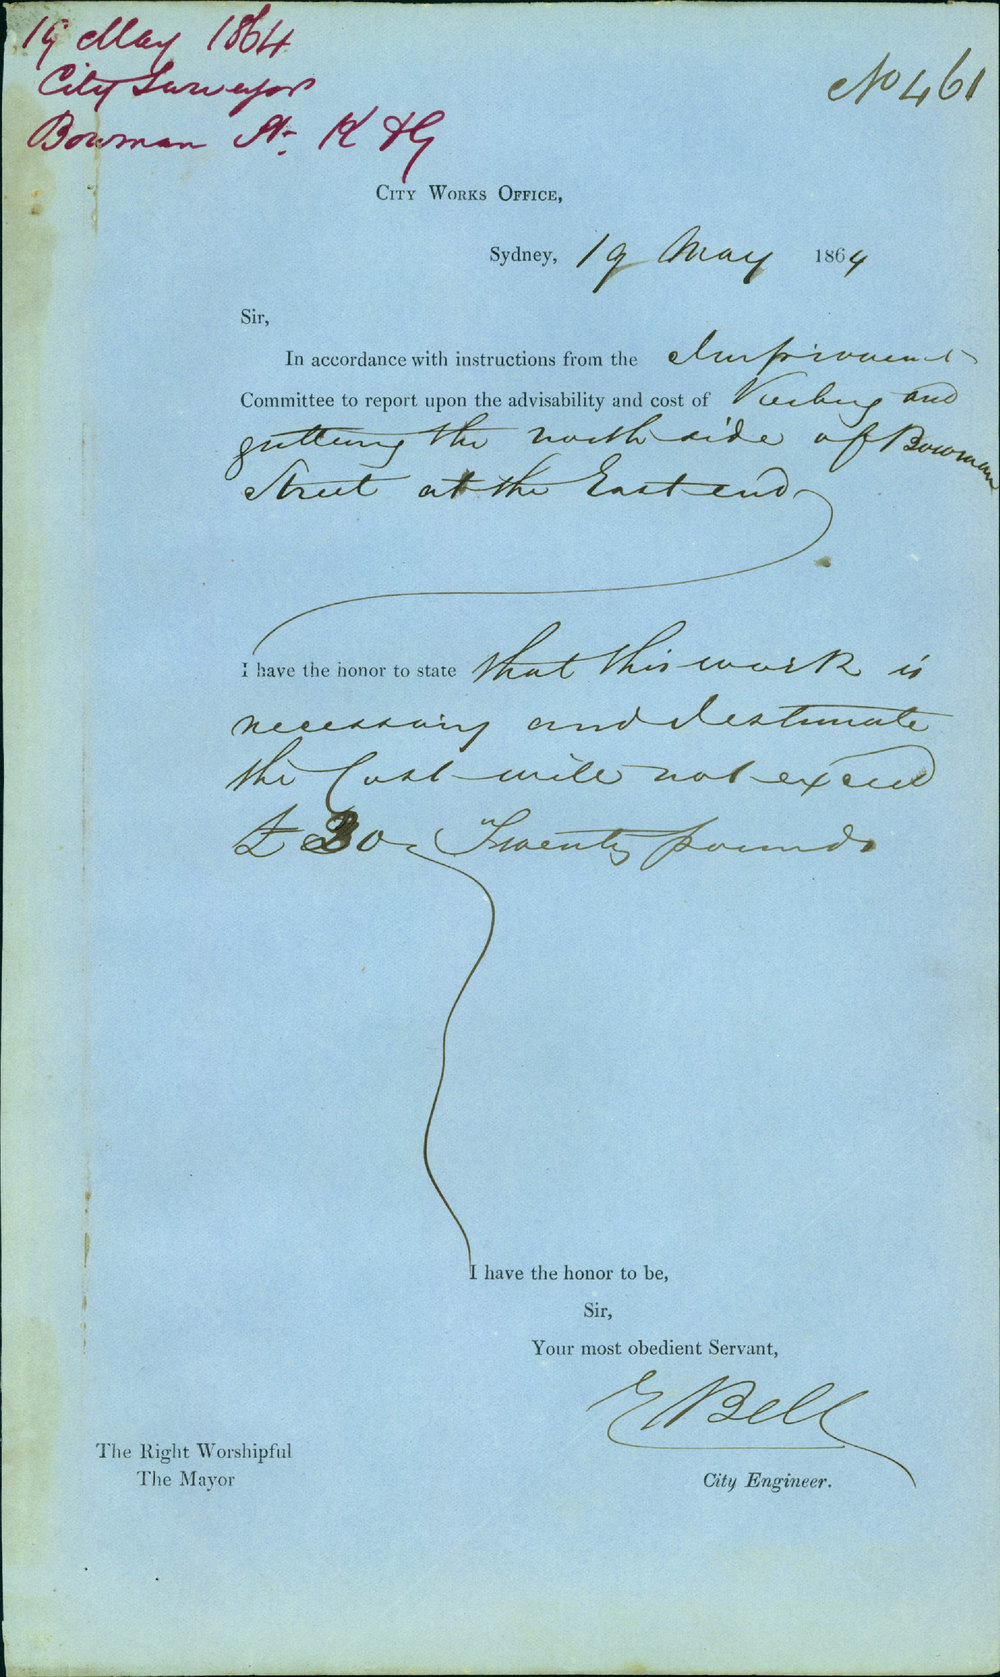 19 May 1864
City Surveyor
Bowman St- K & G
No 461
City Works Office,
Sydney, 19 May 1864
Sir,
In accordance with instructions from the Improvement
Committee to report upon the advisability and cost of Kerbing and
guttering the north side of Bowman
Street at the East end
I have the honor to state that this work is
necessary and I estimate
the Cost will not exceed
£ 20 Twenty pounds
I have the honor to be,
Sir,
Your most obedient Servant,
E Bell
The Right Worshipful
The Mayor
City Engineer.